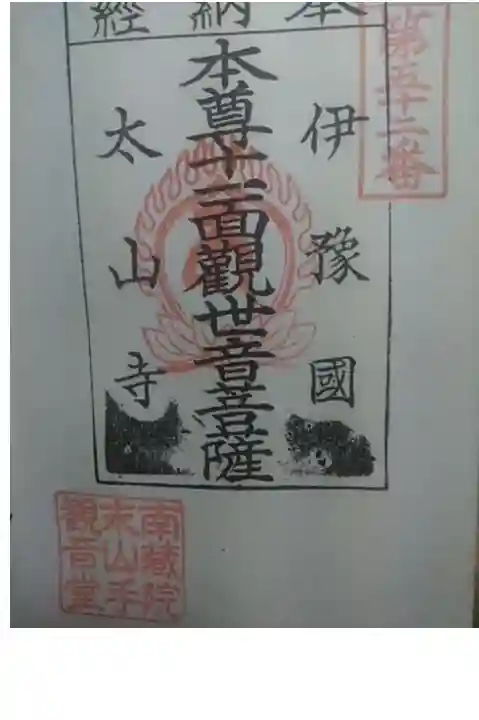 第五十二番
奉納經
伊豫國
本尊十一面觀世音菩薩
太山寺
南藏院
末山手
觀音堂